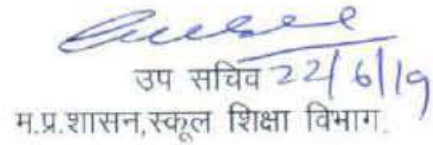 उप सचिव 22/6/19
म.प्र.शासन,स्कूल शिक्षा विभाग.